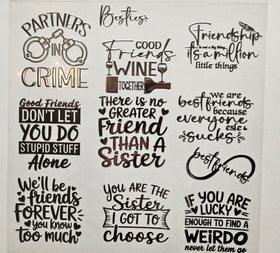 PARTNERS
IN
CRIME
Besties:
GOOD
Friends
WINE
TOGETHER
Friendship
it's a million
little things
Good Friends
DON'T LET
YOU DO
STUPID STUFF
Alone
There is no
GREATER
Friend
THAN A
Sister
we are
best friends
because
everyone
else
sucks
best friends
We'll be
friends
FOREVER
you know
too much
YOU ARE THE
Sister
I GOT TO
choose
IF YOU ARE
LUCKY
ENOUGH TO FIND A
WEIRDO
never let them go